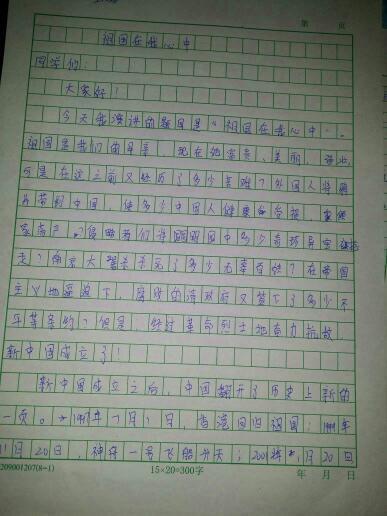 第 页
祖国在我心中
同学们：
大家好！
今天我演讲的题目是"祖国在我心中"。
祖国是我们的母亲，现在她富贵、美丽、
可是在这之前又经历了多少苦难？外国人将鸦
片带到中国，使多少中国人健康
家 产。侵略者们将圆明园中多少奇珍异宝
走？南京大屠杀杀死了多少无辜百姓？在帝国
主义地逼迫下，腐败的清政府又签下了多少不
平等条约？但是，经过革命烈士地奋力抗敌，
新中国成立了！
新中国成立之后，中国翻开了历史上新的
一页。1997年7月1日，香港回归祖国；1999年
11月20日，神舟一号飞船升天；2001 月20日
209001207(8-1)
15×20=300字
年 月 日